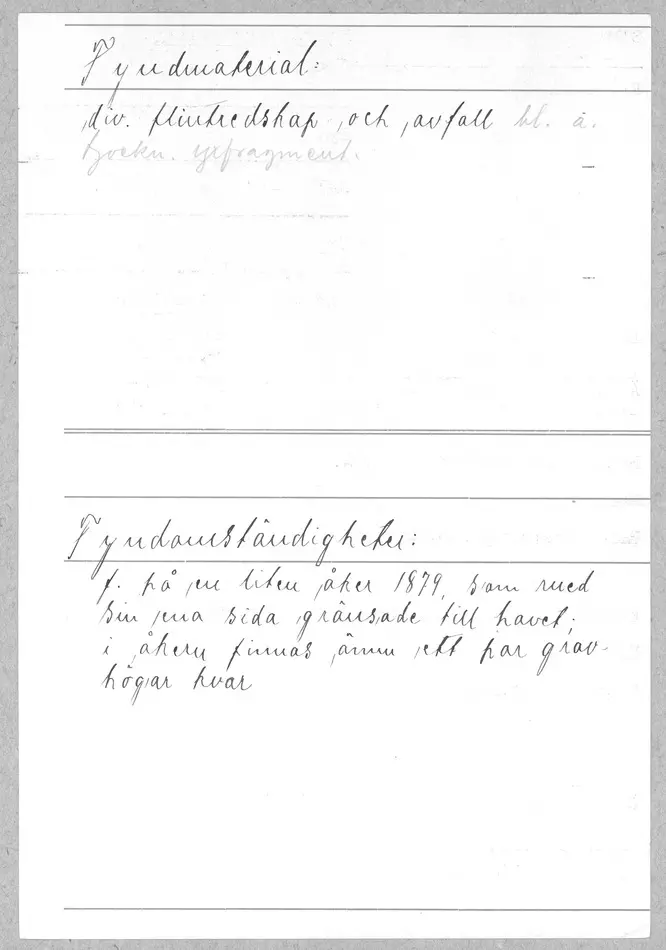 Fyndmaterial:
div. flintredskap och avfall bl. a.
tjockn. yxfragment.
Fyndomständigheter:
f. på en liten åker 1879, som med
sin ena sida gränsade till havet;
i åkern finnas ännu ett par grav-
högar kvar